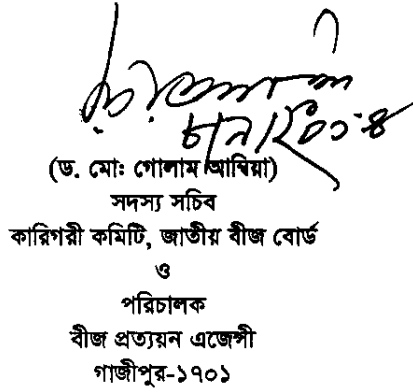 (ড. মোঃ গোলাম আম্বিয়া)
সদস্য সচিব
কারিগরী কমিটি, জাতীয় বীজ বোর্ড
ও
পরিচালক
বীজ প্রত্যয়ন এজেন্সী
গাজীপুর-১৭০১